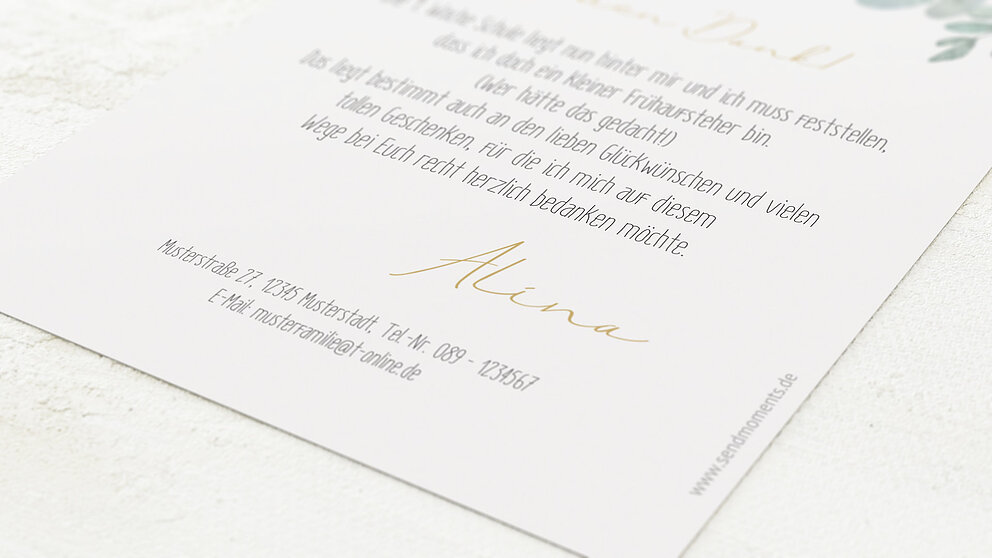 Dank!
1 Woche Schule liegt nun hinter mir und ich muss feststellen,
dass ich doch ein kleiner Frühaufsteher bin.
(Wer hätte das gedacht!)
Das liegt bestimmt auch an den lieben Glückwünschen und vielen
tollen Geschenken, für die ich mich auf diesem
Wege bei Euch recht herzlich bedanken möchte.
Alina
Musterstraße 27, 12345 Musterstadt, Tel.-Nr. 089 - 1234567
E-Mail: musterfamilie@t-online.de
www.sendmoments.de